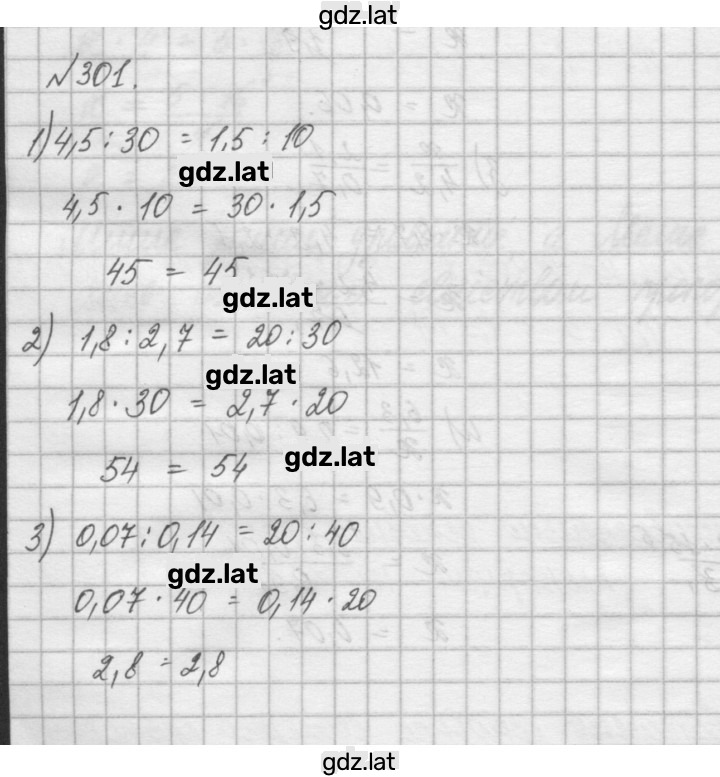 gdz.lat
№301.
1) 4,5 : 30 = 1,5 : 10
gdz.lat
4,5 · 10 = 30 · 1,5
45 = 45
gdz.lat
2) 1,8 : 2,7 = 20 : 30
gdz.lat
1,8 · 30 = 2,7 · 20
54 = 54
gdz.lat
3) 0,07 : 0,14 = 20 : 40
gdz.lat
0,07 · 40 = 0,14 · 20
2,8 = 2,8
gdz.lat